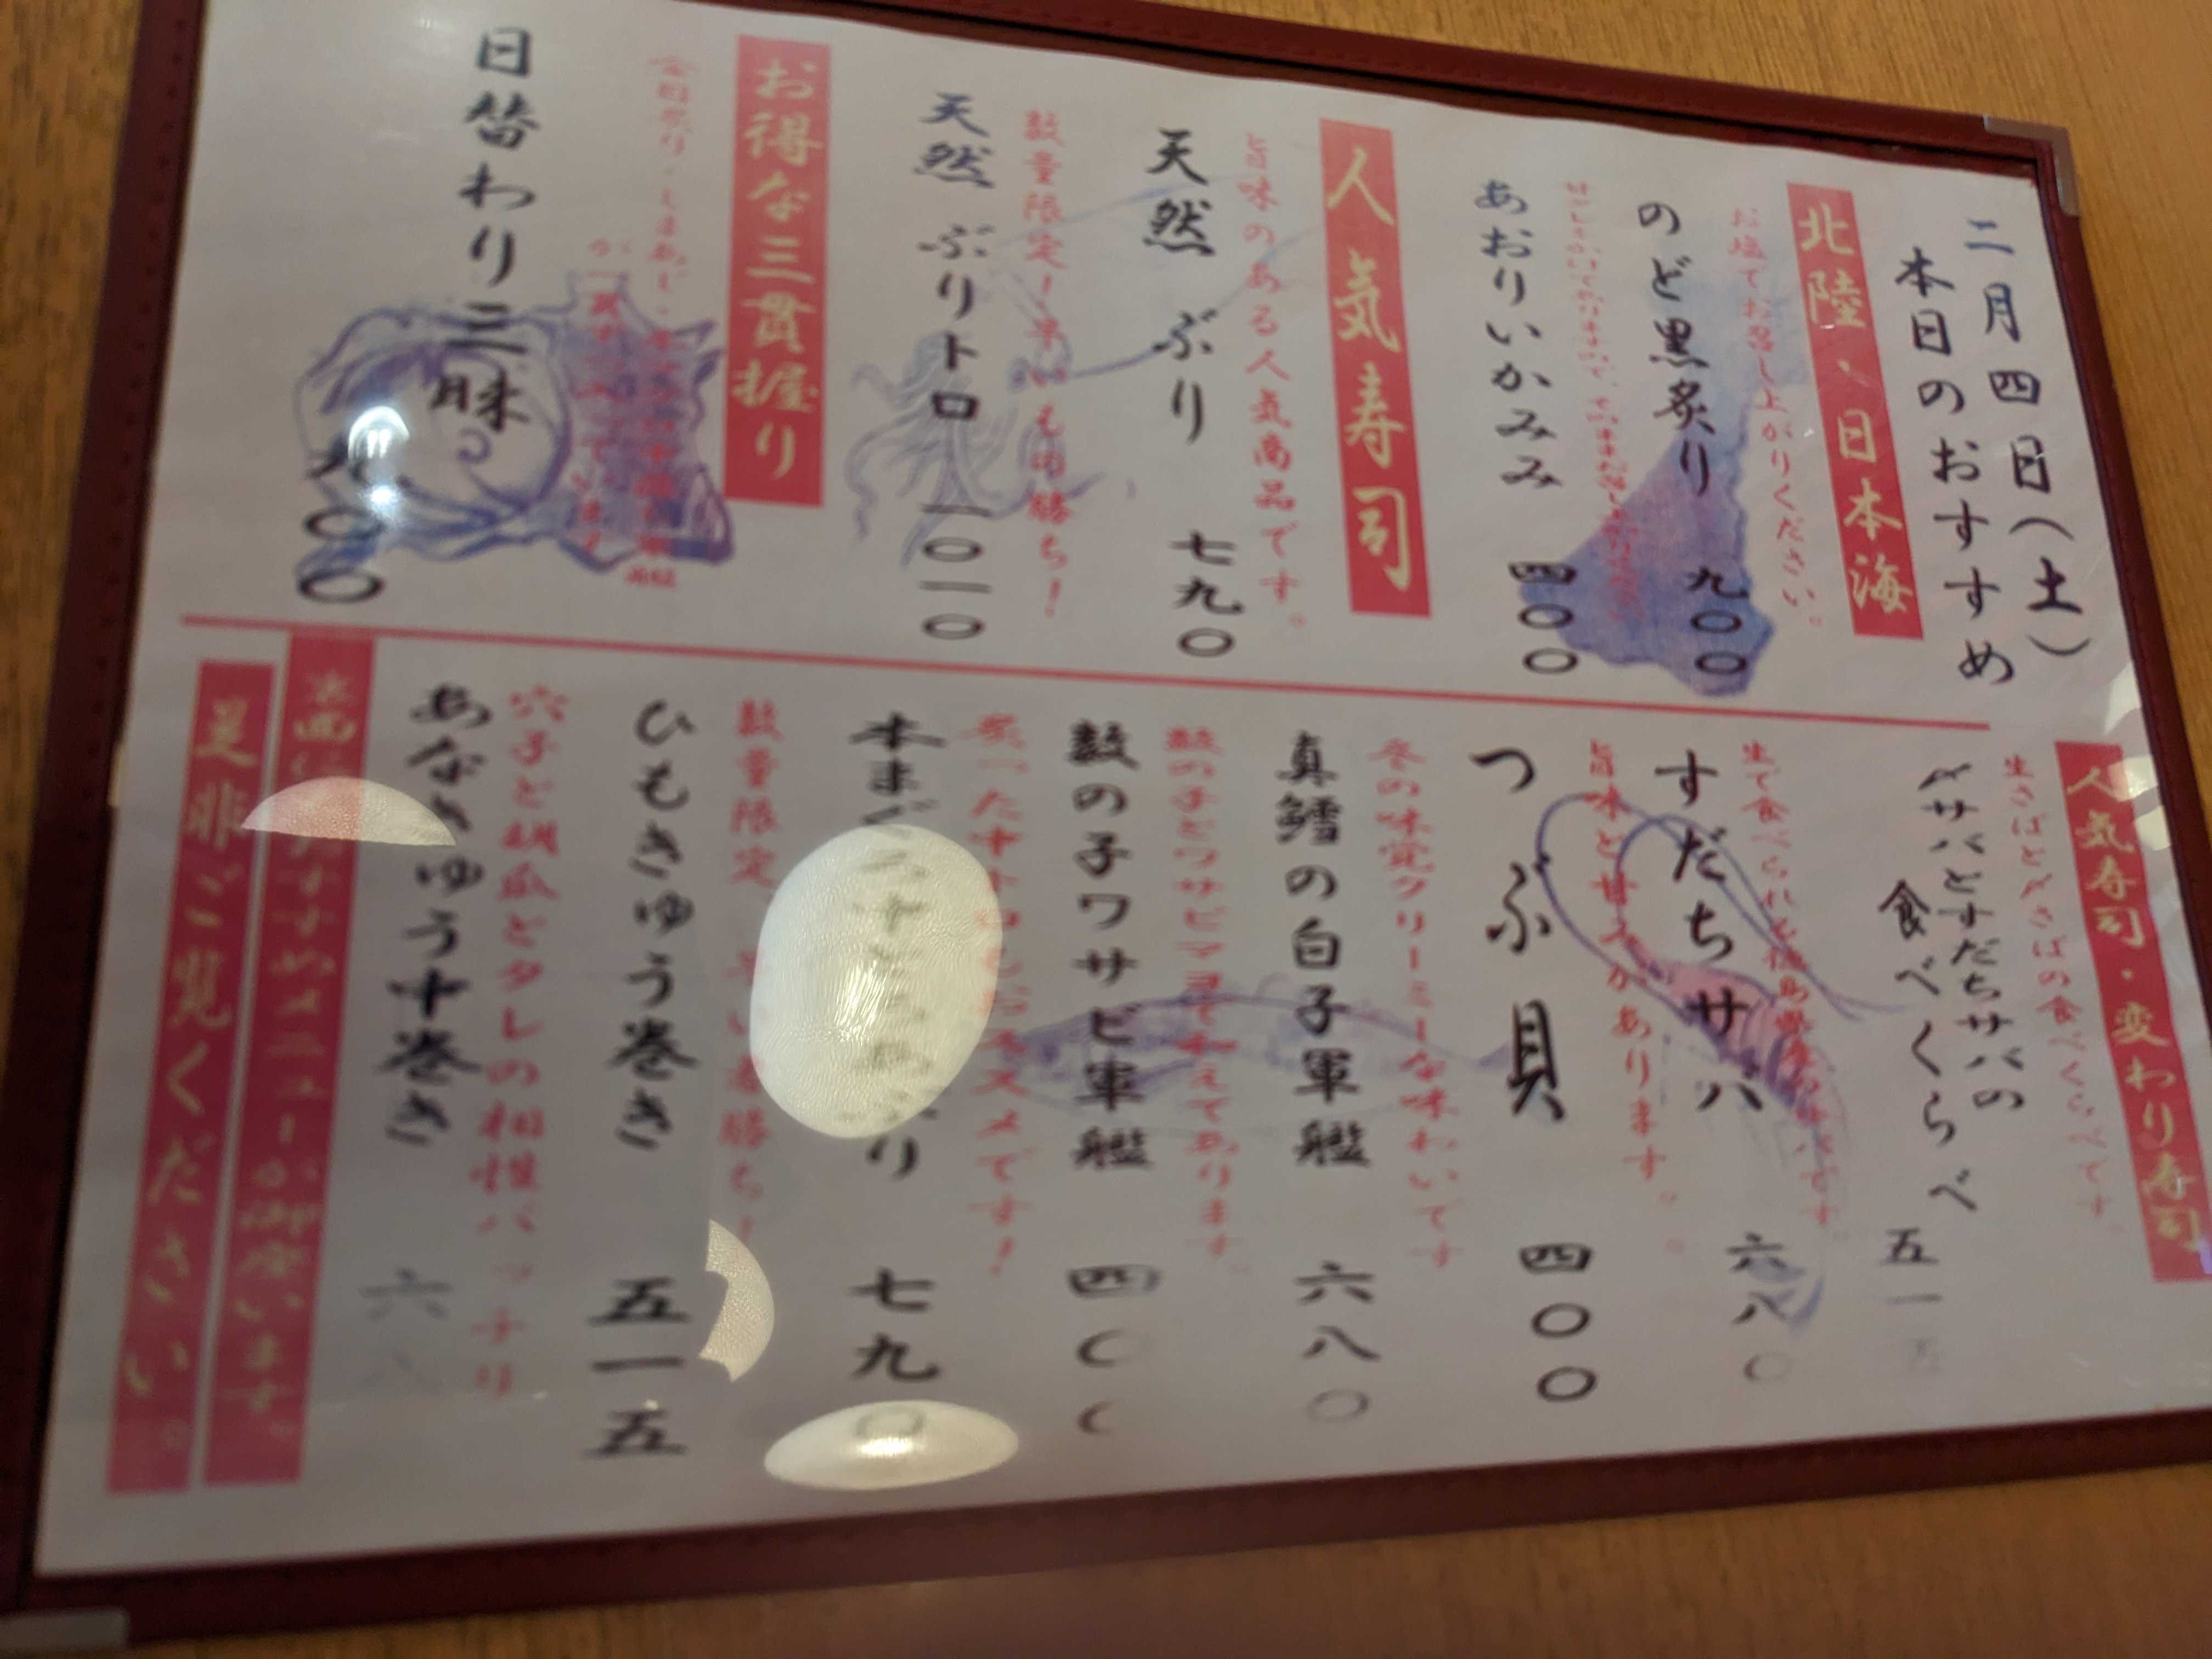 二月四日(土)
本日のおすすめ
北陸・日本海
お塩でお召し上がりください。
のど黒炙り 九〇〇
あおりいかみみ 四〇〇
人気寿司
旨味のある人気商品です。
天然 ぶり 七九〇
数量限定!早いもの勝ち!
天然 ぶりトロ 一〇一〇
お得な三貫握り
日替わり三昧 九〇〇
人気寿司・変わり寿司
生さばと〆さばの食べくらべです。
〆サバとすだちサバの
食べくらべ 五一五
生で食べられる福島県産のサバです
すだちサバ 六八〇
旨味と甘みがあります。
つぶ貝 四〇〇
冬の味覚クリーミーな味わいです
真鱈の白子軍艦 六八〇
数の子とワサビマヨで和えてあります。
数の子ワサビ軍艦 四〇〇
炙った中すめもおススメです!
本まぐろ中とろあぶり 七九〇
数量限定 早い者勝ち!
ひもきゅう巻き 五一五
穴子と胡瓜とタレの相性バッチリ
あなきゅう十巻き 六八
裏面にもおすすめメニューが御座います。
是非ご覧ください。